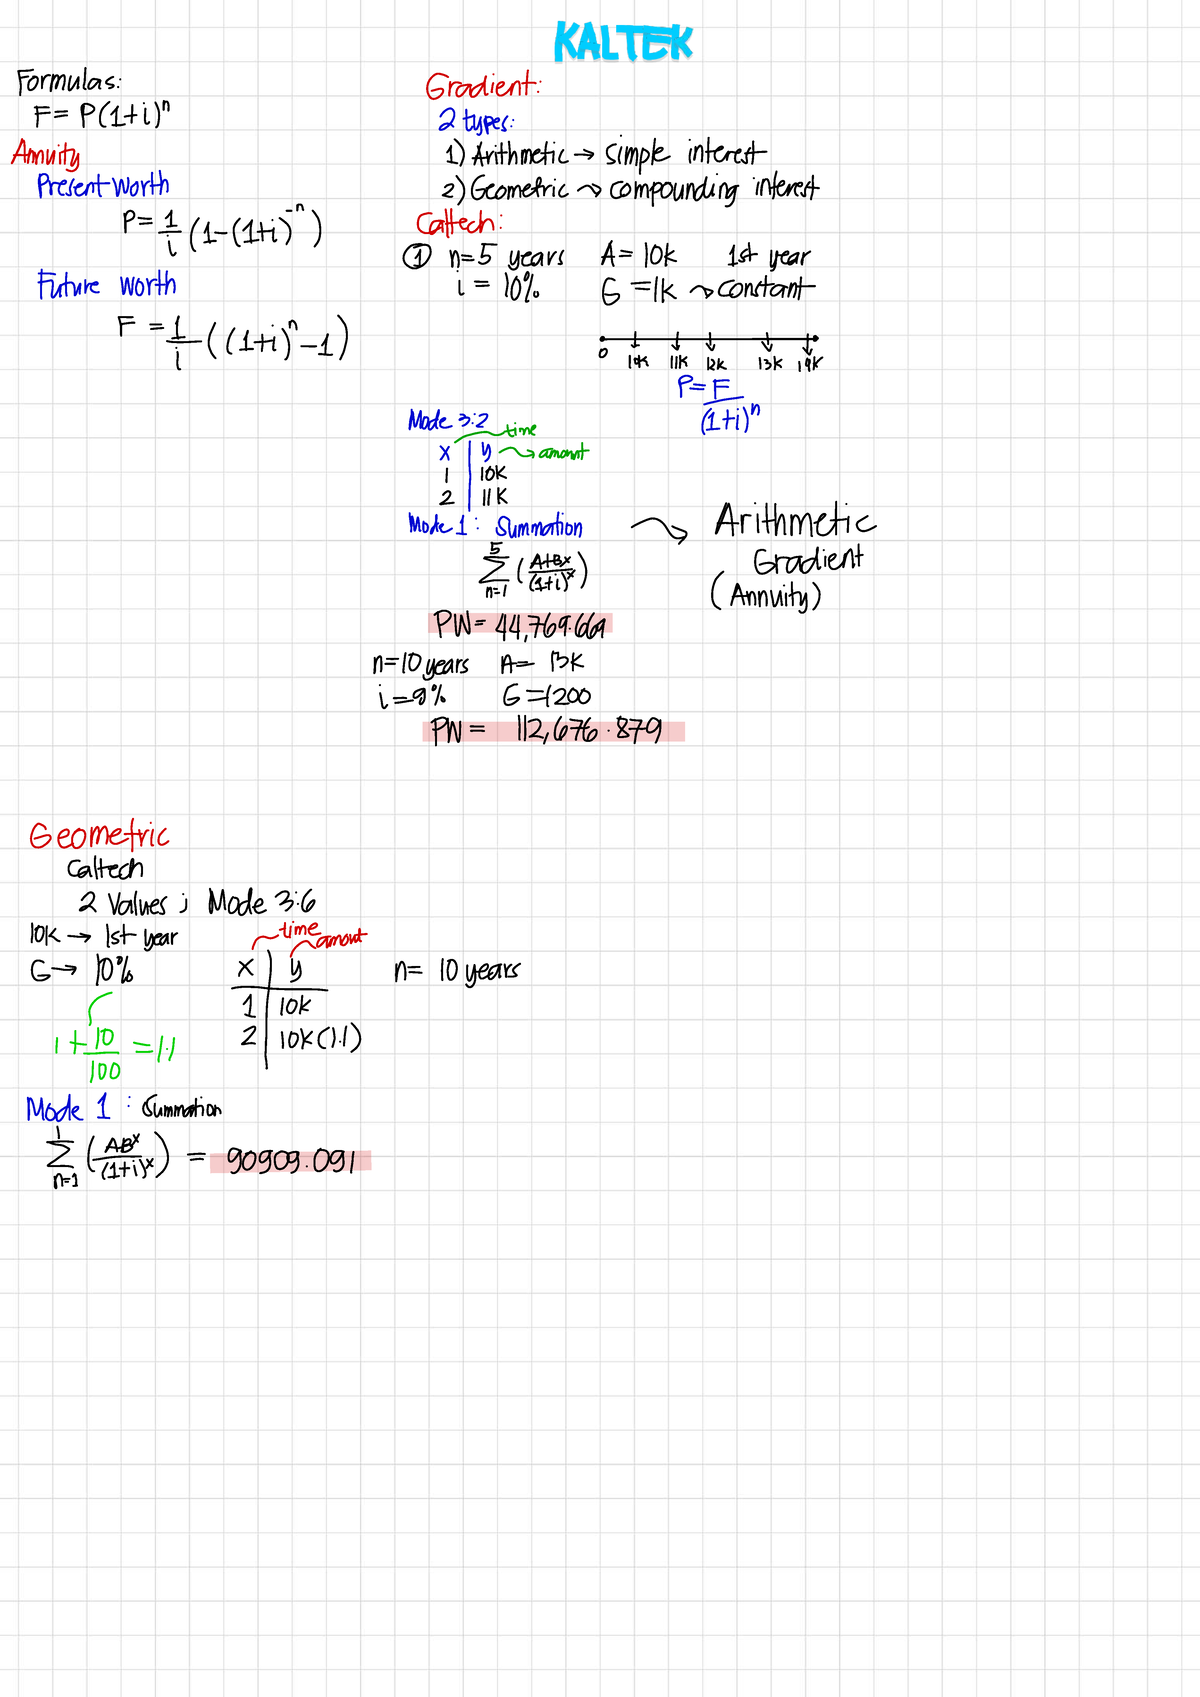 KALTEK
Formulas:
F= P(1+i)ⁿ
Annuity
Present Worth
P= 1/i (1-(1+i)⁻ⁿ)
Future worth
F = 1/i ((1+i)ⁿ-1)
Gradient:
2 types:
1) Arithmetic → simple interest
2) Geometric → compounding interest
Caltech:
① n=5 years A= 10k 1st year
i = 10% G =1k → constant
0 10k 11k 12k 13k 14k
P= F/(1+i)ⁿ
Mode 3:2
time
x | y → amount
1 | 10K
2 | 11K
Mode 1: Summation
5 Σ n=1 (A+Bx/(1+i)ˣ)
→ Arithmetic
Gradient
(Annuity)
PW= 44,769.669
n=10 years A= 13K
i=9% G=1200
PW = 112,676.879
Geometric
Caltech
2 Values ; Mode 3:6
10K → 1st year
G→ 10%
1 + 10/100 = 1.1
time amount
x | y n= 10 years
1 | 10K
2 | 10K(1.1)
Mode 1 : Summation
1 Σ n=1 (ABˣ/(1+i)ˣ) = 90909.091